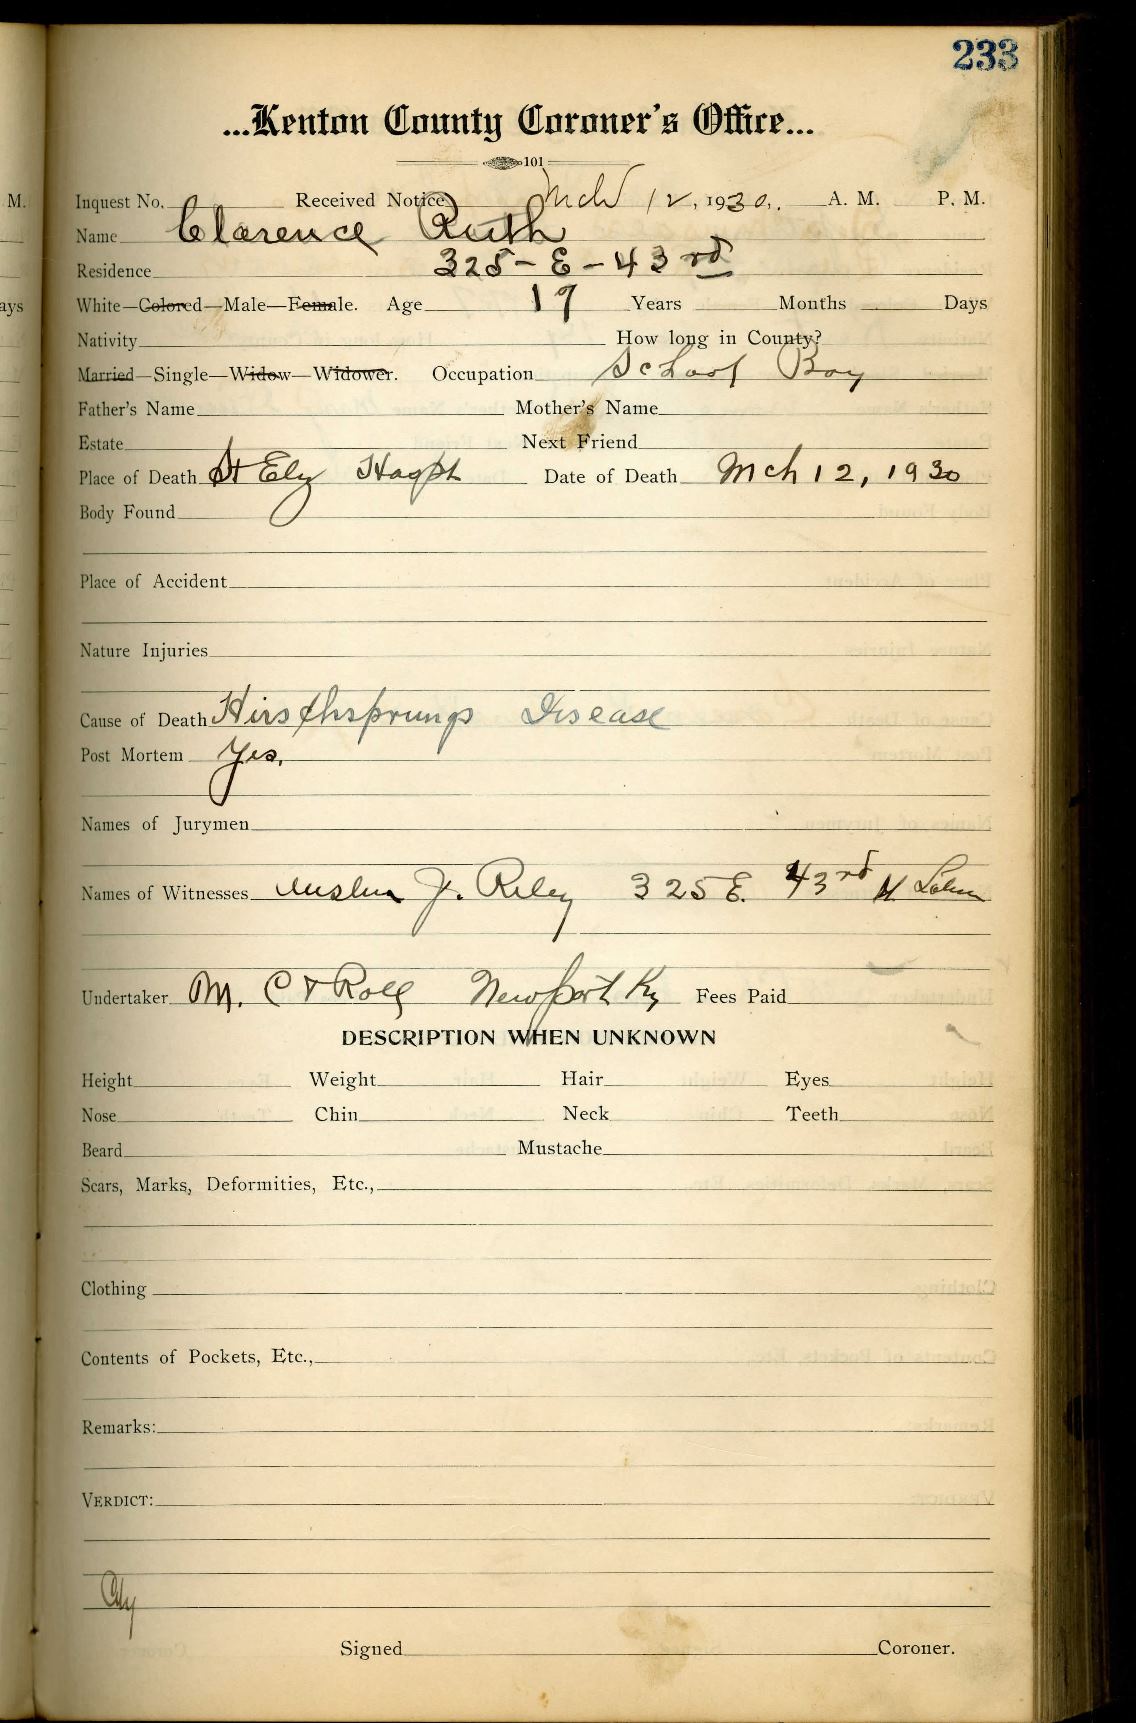 233
...Kenton County Coroner's Office...
101
M. Inquest No. Received Notice Mch 12, 1930, A. M. P. M.
Name Clarence Ruth
Residence 325-E-43rd
ays White—Colored—Male—Female. Age 17 Years Months Days
Nativity How long in County?
Married—Single—Widow—Widower. Occupation School Boy
Father's Name Mother's Name
Estate Next Friend
Place of Death St Elz Hospt Date of Death Mch 12, 1930
Body Found
Place of Accident
Nature Injuries
Cause of Death Hirsthsprungs Disease
Post Mortem Yes.
Names of Jurymen
Names of Witnesses J. Riley 325 E. 43rd
Undertaker M. Newport Ky Fees Paid
DESCRIPTION WHEN UNKNOWN
Height Weight Hair Eyes
Nose Chin Neck Teeth
Beard Mustache
Scars, Marks, Deformities, Etc.,
Clothing
Contents of Pockets, Etc.,
Remarks:
VERDICT:
Signed Coroner.